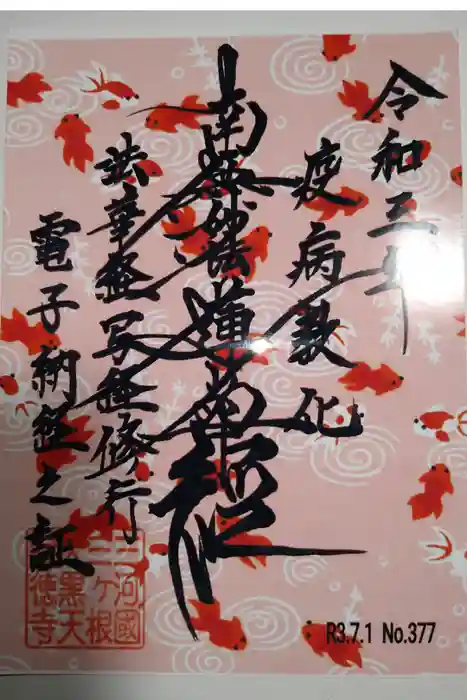 令和三年
疫病教化
南無妙法蓮華経
法華経写経修行
電子納経之証
三河國
三ヶ根
大黒天
徳寺
R3.7.1 No.377